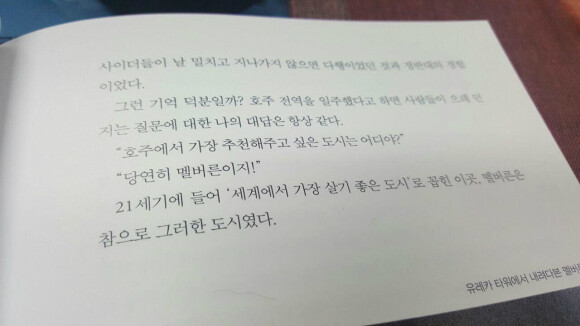 사이더들이 날 밀치고 지나가지 않으면 다행이었던 것과 정반대의 경험
이었다.
그런 기억 덕분일까? 호주 전역을 일주했다고 하면 사람들이 으레 던
지는 질문에 대한 나의 대답은 항상 같다.
“호주에서 가장 추천해주고 싶은 도시는 어디야?”
“당연히 멜버른이지!”
21세기에 들어 ‘세계에서 가장 살기 좋은 도시’로 꼽힌 이곳, 멜버른은
참으로 그러한 도시였다.
유레카 타워에서 내려다본 멜버